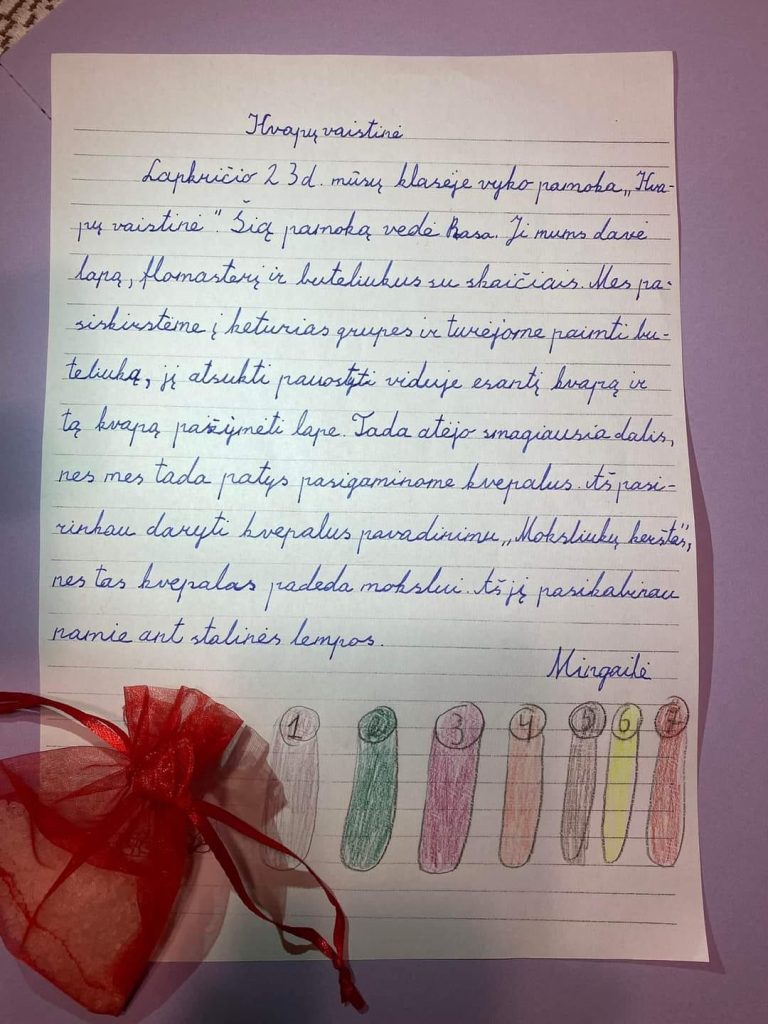 Kvapų vaistinė
Lapkričio 23d. mūsų klasėje vyko pamoka „Kva-
pų vaistinė". Šią pamoką vedė Rasa. Ji mums davė
lapą, flomasterį ir buteliukus su skaičiais. Mes pa-
siskirstėme į keturias grupes ir turėjome paimti bu-
teliuką, jį atsukti pauostyti viduje esantį kvapą ir
tą kvapą pažymėti lape. Tada atėjo smagiausia dalis,
nes mes tada patys pasigaminome kvepalus. Aš pasi-
rinkau daryti kvepalus pavadinimu „Moksliukų kerštas",
nes tas kvepalas padeda mokslui. Aš jį pasikabinau
namie ant stalinės lempos.
Mingailė
1 2 3 4 5 6 7